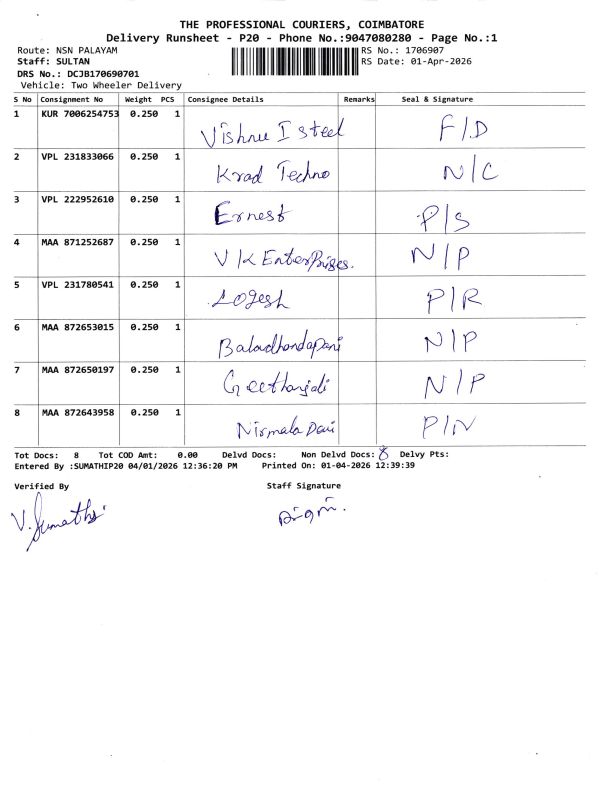 THE PROFESSIONAL COURIERS, COIMBATORE
Delivery Runsheet - P20 - Phone No.:9047080280 - Page No.:1
Route: NSN PALAYAM RS No.: 1706907
Staff: SULTAN RS Date: 01-Apr-2026
DRS No.: DCJB170690701
Vehicle: Two Wheeler Delivery
S No Consignment No Weight PCS Consignee Details Remarks Seal & Signature
1 KUR 7006254753 0.250 1 Vishnu I steel F/D
2 VPL 231833066 0.250 1 Krad Techno N/C
3 VPL 222952610 0.250 1 Ernest P/S
4 MAA 871252687 0.250 1 V K EnterPrises. N/P
5 VPL 231780541 0.250 1 Logesh P/R
6 MAA 872653015 0.250 1 Baladhandapani N/P
7 MAA 872650197 0.250 1 Geethanjali N/P
8 MAA 872643958 0.250 1 Nirmala Devi P/N
Tot Docs: 8 Tot COD Amt: 0.00 Delvd Docs: Non Delvd Docs: 8 Delvy Pts:
Entered By :SUMATHIP20 04/01/2026 12:36:20 PM Printed On: 01-04-2026 12:39:39
Verified By Staff Signature
V. Sumathi